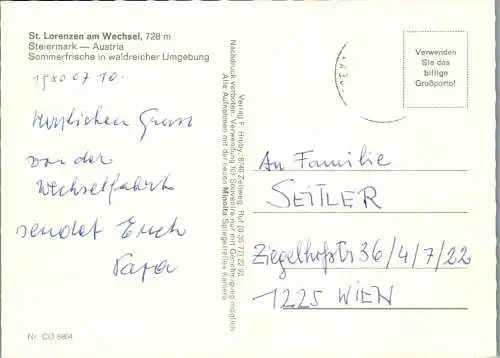 St. Lorenzen am Wechsel, 728 m
Steiermark — Austria
Sommerfrische in waldreicher Umgebung
1980 07 10.
Herzlichen Gruss
von der
Wechselfahrt
sendet Euch
Papa
Nr. CO 6804
Verlag F. Hruby, 8740 Zeltweg, Ruf (0 35 77) 22 92
Nachdruck verboten. Verwendung für Souvenire nur mit Genehmigung möglich
Alle Aufnahmen mit der neuen Minolta Spiegelreflex Kamera
Verwenden
Sie das
billige
Großporto!
An Familie
SEITLER
Ziegelhofstr 36/4/7/22
1225 WIEN